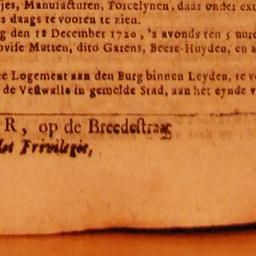 jes, Manufacturen, Porcelynen, daar onder
es daags te vooren te zien.
g den 18 December 1720, 's avonds ten 5 uure
ovise Mutten, dito Garens, Beere-Huyden, en a
e Logement aan den Burg binnen Leyden, te v
de Vestwalle in gemelde Stad, aan het eynde v
R, op de Breedestraat
Met Privilegie,